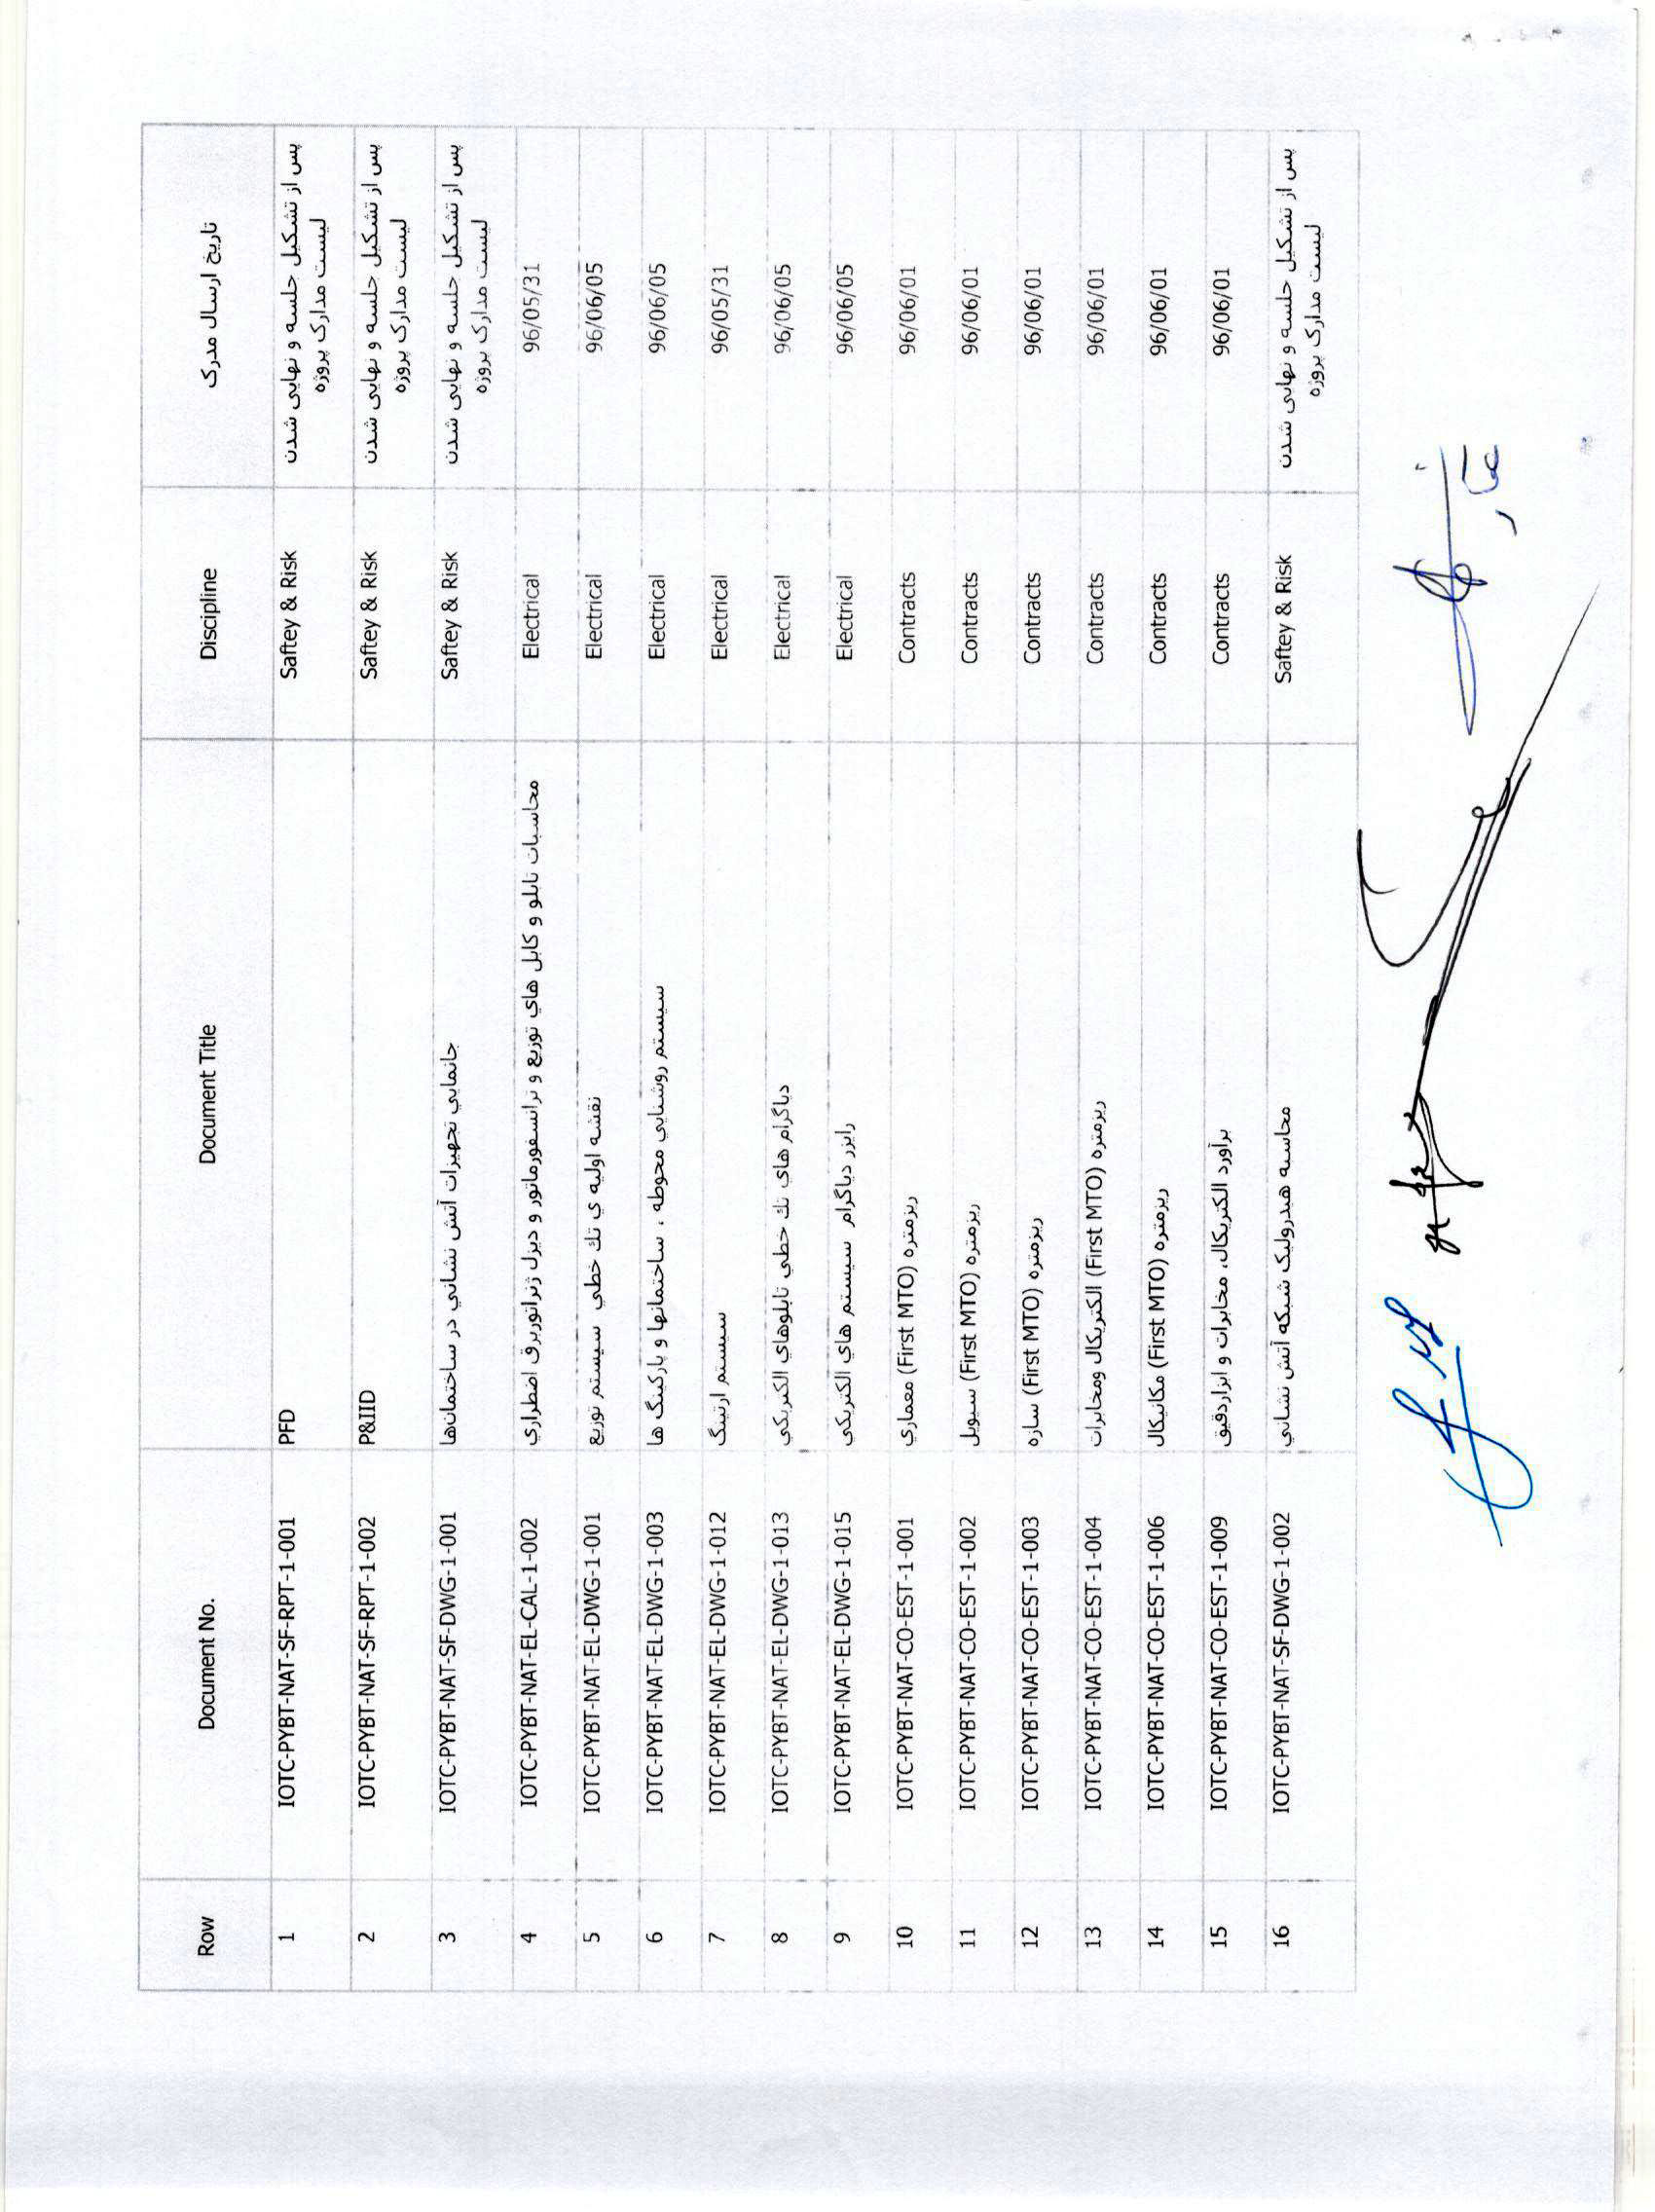 Row Document No. Document Title Discipline تاریخ ارسال مدرک
1 IOTC-PYBT-NAT-SF-RPT-1-001 PFD Saftey & Risk پس از تشکیل جلسه و نهایی شدن
لیست مدارک پروژه
2 IOTC-PYBT-NAT-SF-RPT-1-002 P&IID Saftey & Risk پس از تشکیل جلسه و نهایی شدن
لیست مدارک پروژه
3 IOTC-PYBT-NAT-SF-DWG-1-001 جانمايي تجهيزات آتش نشاني در ساختمان‌ها Saftey & Risk پس از تشکیل جلسه و نهایی شدن
لیست مدارک پروژه
4 IOTC-PYBT-NAT-EL-CAL-1-002 محاسبات تابلو و كابل هاي توزيع و ترانسفورماتور و ديزل ژنراتوربرق اضطراري Electrical 96/05/31
5 IOTC-PYBT-NAT-EL-DWG-1-001 نقشه اوليه ي تك خطي سيستم توزيع Electrical 96/06/05
6 IOTC-PYBT-NAT-EL-DWG-1-003 سيستم روشنايي محوطه ، ساختمانها و پاركينگ ها Electrical 96/06/05
7 IOTC-PYBT-NAT-EL-DWG-1-012 سيستم ارتينگ Electrical 96/05/31
8 IOTC-PYBT-NAT-EL-DWG-1-013 دياگرام هاي تك خطي تابلوهاي الكتريكي Electrical 96/06/05
9 IOTC-PYBT-NAT-EL-DWG-1-015 رايزر دياگرام سيستم هاي الكتريكي Electrical 96/06/05
10 IOTC-PYBT-NAT-CO-EST-1-001 ريزمتره (First MTO) معماري Contracts 96/06/01
11 IOTC-PYBT-NAT-CO-EST-1-002 ريزمتره (First MTO) سيويل Contracts 96/06/01
12 IOTC-PYBT-NAT-CO-EST-1-003 ريزمتره (First MTO) سازه Contracts 96/06/01
13 IOTC-PYBT-NAT-CO-EST-1-004 ريزمتره (First MTO) الكتريكال ومخابرات Contracts 96/06/01
14 IOTC-PYBT-NAT-CO-EST-1-006 ريزمتره (First MTO) مكانيكال Contracts 96/06/01
15 IOTC-PYBT-NAT-CO-EST-1-009 برآورد الكتريكال، مخابرات و ابزاردقيق Contracts 96/06/01
16 IOTC-PYBT-NAT-SF-DWG-1-002 محاسبه هيدروليک شبکه آتش نشاني Saftey & Risk پس از تشکیل جلسه و نهایی شدن
لیست مدارک پروژه